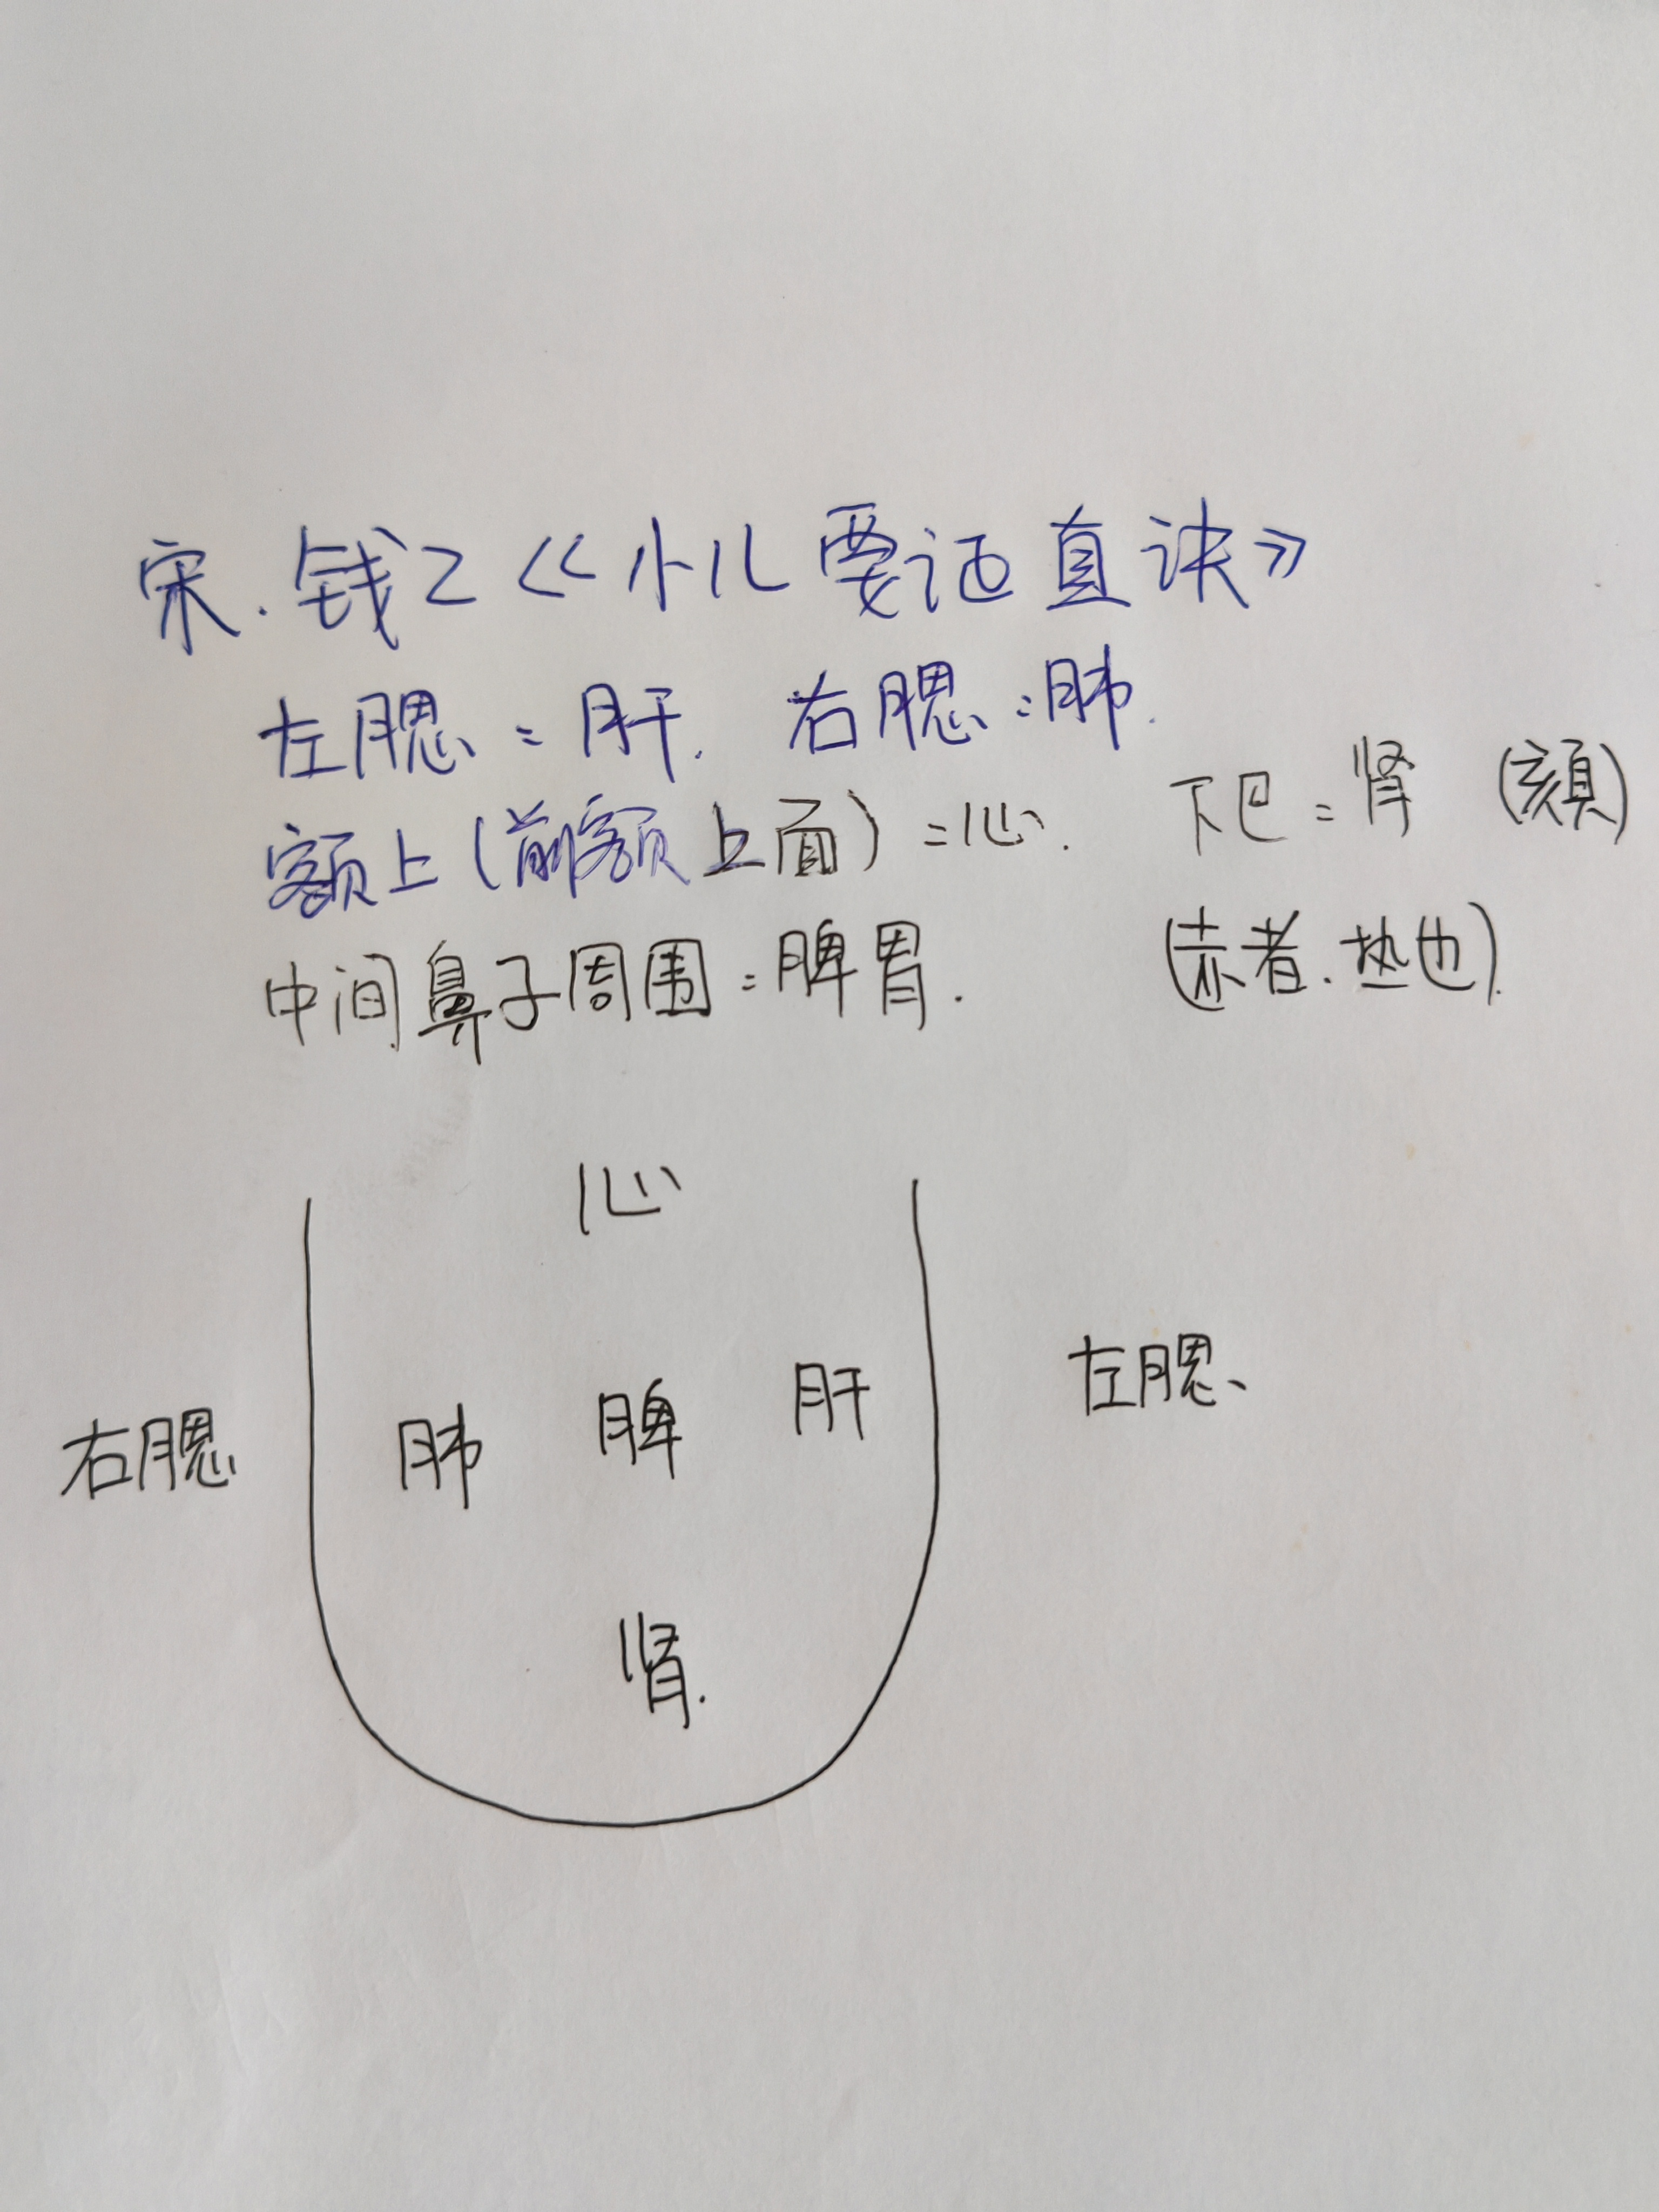 宋.钱乙《小儿要证直诀》
左腮=肝. 右腮=肺.
额上(前额上面)=心. 下巴=肾 (颏)
中间鼻子周围=脾胃. (赤者.热也).
心
右腮 肺 脾 肝 左腮
肾.